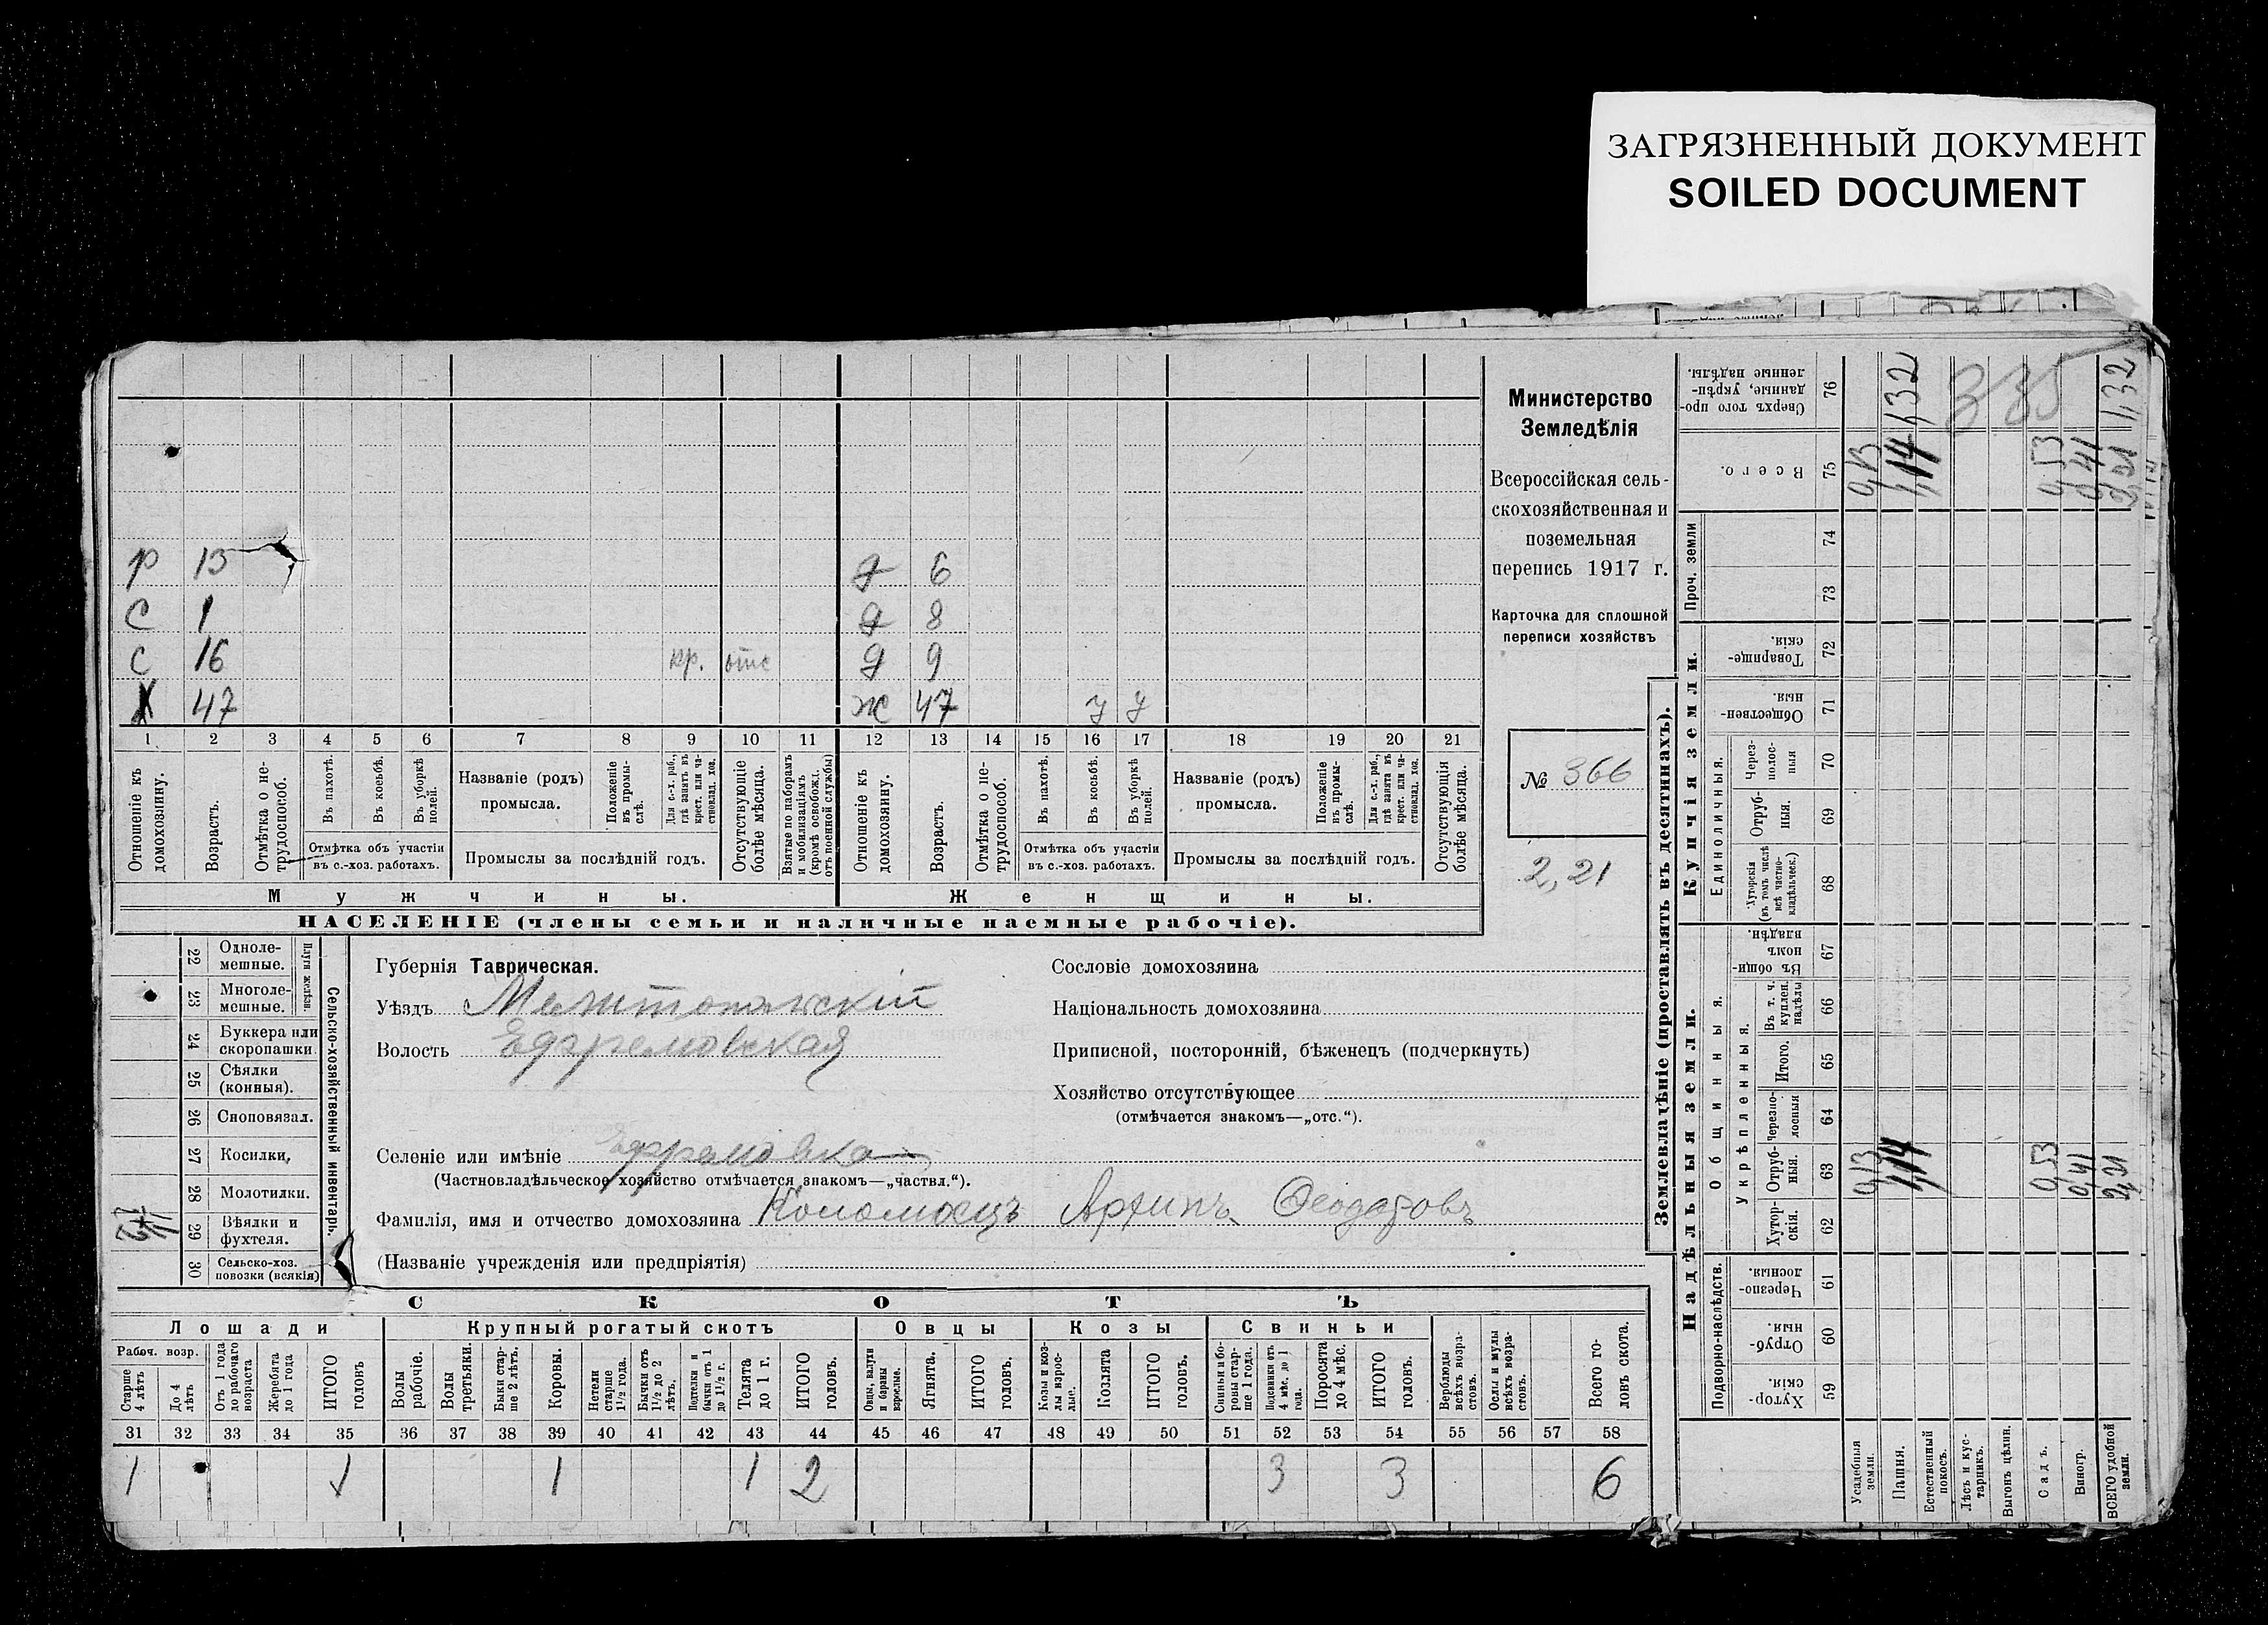 ЗАГРЯЗНЕННЫЙ ДОКУМЕНТ
SOILED DOCUMENT
Министерство
Земледѣлія
Всероссійская сель-
скохозяйственная и
поземельная
перепись 1917 г.
Карточка для сплошной
переписи хозяйствъ
№ 366
2,21
р 13 д 6
с 1 д 8
с 16 кр. отс д 9
Х 47 ж 47 у у
1 2 3 4 5 6 7 8 9 10 11 12 13 14 15 16 17 18 19 20 21
Отношеніе къ домохозяину.
Возрастъ.
Отмѣтка о не-трудоспособ.
Въ пахотѣ.
Въ косьбѣ.
Въ уборкѣ полей.
Отмѣтка объ участіи
въ с.-хоз. работахъ.
Названіе (родъ)
промысла.
Положеніе въ промы-слѣ.
Для с.-х. раб., гдѣ занятъ въ крест. или ча-стновлад. хоз.
Промыслы за послѣдній годъ.
Отсутствующіе болѣе мѣсяца.
Взятые по наборамъ и мобилизаціямъ (кромѣ освобожд. отъ военной службы)
Отношеніе къ домохозяину.
Возрастъ.
Отмѣтка о не-трудоспособ.
Въ пахотѣ.
Въ косьбѣ.
Въ уборкѣ полей.
Отмѣтка объ участіи
въ с.-хоз. работахъ.
Названіе (родъ)
промысла.
Положеніе въ промы-слѣ.
Для с.-х. раб., гдѣ занята въ крест. или ча-стновлад. хоз.
Промыслы за послѣдній годъ.
Отсутствующія болѣе мѣсяца.
Мужчины. Женщины.
НАСЕЛЕНІЕ (члены семьи и наличные наемные рабочіе).
Сельско-хозяйственный инвентарь.
Плуги желѣзн.
22 Одноле-мешные.
23 Многоле-мешные.
24 Буккера или скоропашки
25 Сѣялки (конныя).
26 Сноповязал.
27 Косилки.
28 Молотилки.
29 Вѣялки и фухтеля.
30 Сельско-хоз. повозки (всякія)
Губернія Таврическая.
Уѣздъ Мелитопольскій
Волость Ефремовская
Селеніе или имѣніе Ефремовка
(Частновладѣльческое хозяйство отмѣчается знакомъ—„частвл.“).
Фамилія, имя и отчество домохозяина Коломоецъ Архипъ
(Названіе учрежденія или предпріятія)
Сословіе домохозяина
Національность домохозяина
Приписной, посторонній, бѣженецъ (подчеркнуть)
Хозяйство отсутствующее
(отмѣчается знакомъ—„отс.“).
СКОТЪ
Лошади Крупный рогатый скотъ Овцы Козы Свиньи
Рабоч. возр.
Старше 4 лѣтъ
До 4 лѣтъ
Отъ 1 года до рабочаго возраста
Жеребята до 1 года
ИТОГО головъ
Волы рабочіе.
Волы третьяки.
Быки стар-ше 2 лѣтъ.
Коровы.
Нетели старше 1½ года.
Бычки отъ 1½ до 2 лѣтъ.
Подтелки и бычки отъ 1 до 1½ г.
Телята до 1 г.
ИТОГО головъ.
Овцы, валухи и бараны взрослые.
Ягнята.
ИТОГО головъ.
Козы и коз-лы взрос-лые.
Козлята
ИТОГО головъ.
Свиньи и бо-ровы стар-ше 1 года.
Подсвинки отъ 4 мѣс. до 1 года.
Поросята до 4 мѣс.
ИТОГО головъ.
Верблюды всѣхъ возра-стовъ.
Ослы и мулы всѣхъ возра-стовъ.
Всего го-ловъ скота.
31 32 33 34 35 36 37 38 39 40 41 42 43 44 45 46 47 48 49 50 51 52 53 54 55 56 57 58
1 1 1 1 2 3 3 6
Землевладѣніе (проставлять въ десятинахъ).
Надѣльныя земли. Купчія земли.
Подворно-наслѣдств.
Общинныя.
Укрѣпленныя.
Единоличныя.
Проч. земли
59 Хутор-скія.
60 Отруб-ныя.
61 Черезпо-лосныя.
62 Хутор-скія.
63 Отруб-ныя.
64 Черезпо-лосныя
65 Итого.
66 Въ т. ч. куплен. надѣлы
67 Въ общи-номъ владѣн.
68 Хуторскія (въ томъ числѣ всѣ частно-владѣльческ.)
69 Отруб-ныя.
70 Через-полос-ныя
71 Обществен-ныя.
72 Товарище-скія.
73
74
75 Всего.
76 Сверхъ того про-данные, укрѣп-ленные надѣлы.
Усадебныя земли. 0,13 0,13
Пашня. 1,14 1,14 1,32
Естественный покосъ.
Лѣсъ и кус-тарникъ.
Выгонъ цѣлин.
Садъ. 0,53 0,53
Виногр. 0,41 0,41
ВСЕГО удобной земли. 2,21 2,21 1,32
335